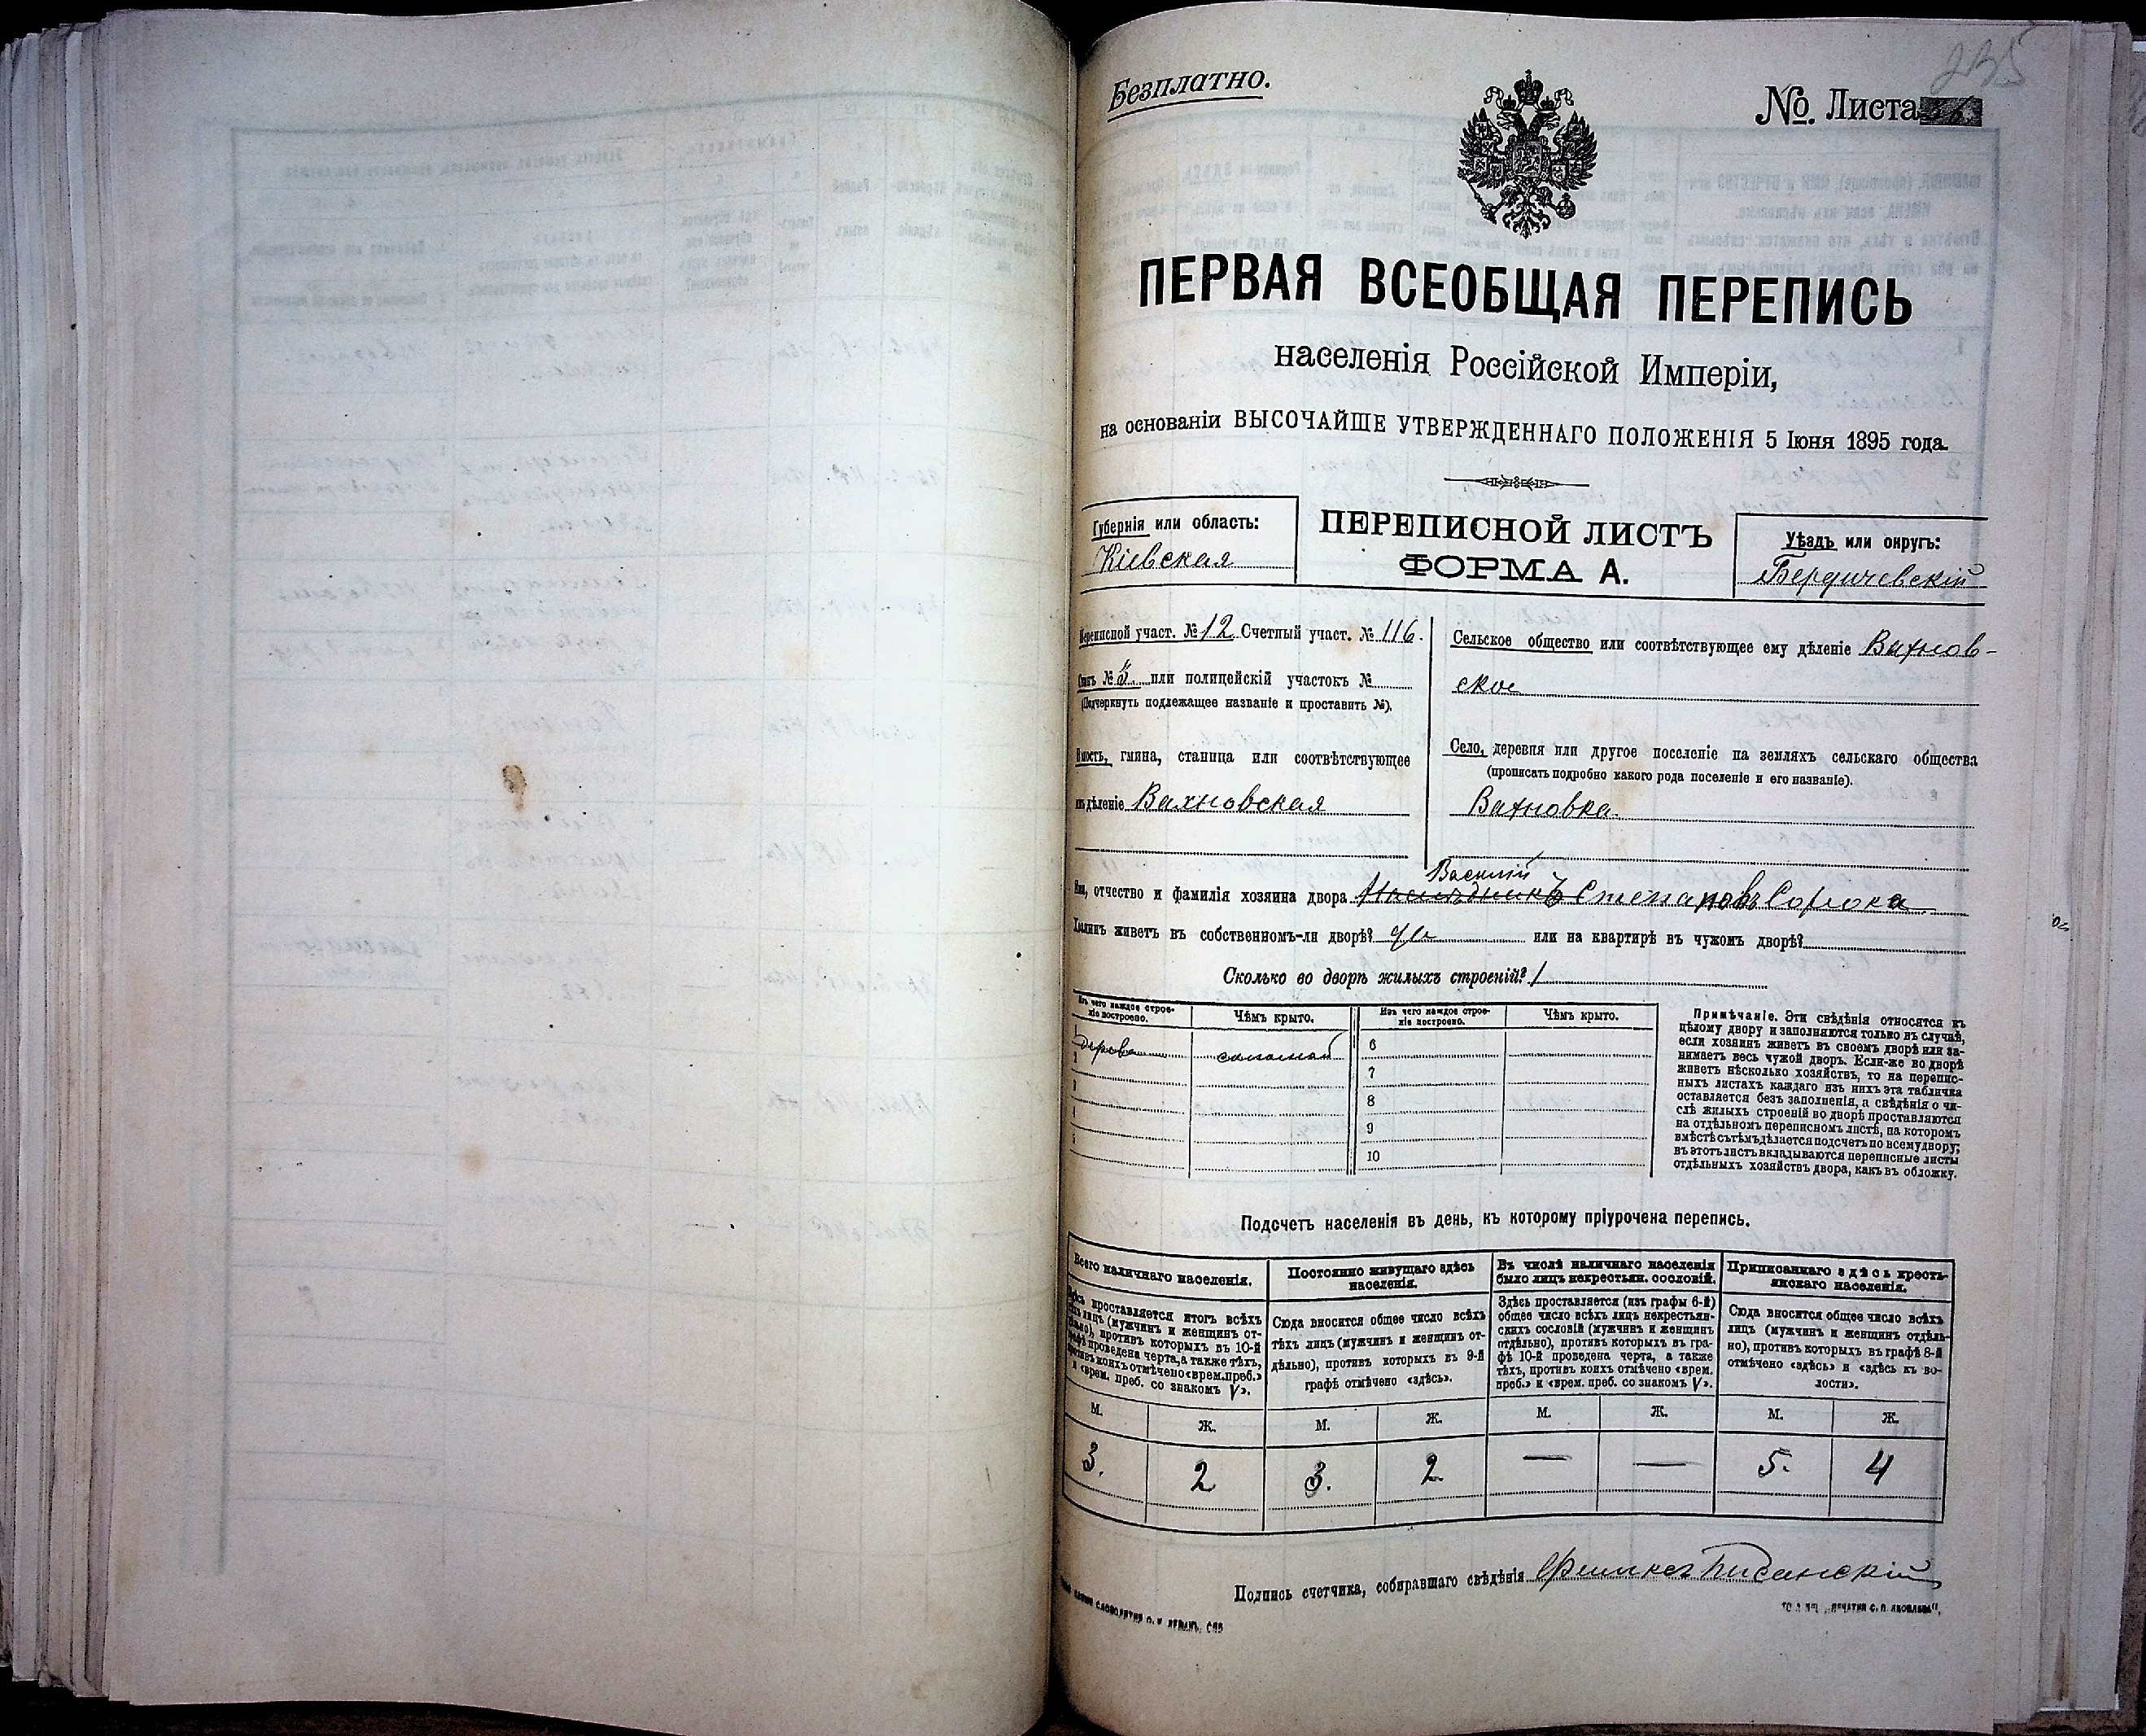 235
Безплатно.
№. Листа
ПЕРВАЯ ВСЕОБЩАЯ ПЕРЕПИСЬ
населенія Россійской Имперіи,
на основаніи ВЫСОЧАЙШЕ УТВЕРЖДЕННАГО ПОЛОЖЕНІЯ 5 Іюня 1895 года.
Губернія или область:
Кіевская
ПЕРЕПИСНОЙ ЛИСТЪ
ФОРМА А.
Уѣздъ или округъ:
Бердичевскій
Переписной участ. № 12 Счетный участ. № 116.
Станъ № 3 или полицейскій участокъ №
(Подчеркнуть подлежащее названіе и проставить №).
гмина, станица или соотвѣтствующее
дѣленіе Вахновская
Сельское общество или соотвѣтствующее ему дѣленіе Вахнов-
ское
Село, деревня или другое поселеніе на земляхъ сельскаго общества
(прописать подробно какого рода поселеніе и его названіе).
Вахновка.
Василій
Имя, отчество и фамилія хозяина двора Степановъ Сорока
Хозяинъ живетъ въ собственномъ-ли дворѣ? да или на квартирѣ въ чужомъ дворѣ?
Сколько во дворѣ жилыхъ строеній? 1
Изъ чего каждое строе-
ніе построено.
Чѣмъ крыто.
Изъ чего каждое строе-
ніе построено.
Чѣмъ крыто.
1 дерева соломой
2
3
4
5
6
7
8
9
10
Примѣчаніе. Эти свѣдѣнія относятся къ
цѣлому двору и заполняются только въ случаѣ,
если хозяинъ живетъ въ своемъ дворѣ или за-
нимаетъ весь чужой дворъ. Если-же во дворѣ
живетъ нѣсколько хозяйствъ, то на перепис-
ныхъ листахъ каждаго изъ нихъ эта табличка
оставляется безъ заполненія, а свѣдѣнія о чи-
слѣ жилыхъ строеній во дворѣ проставляются
на отдѣльномъ переписномъ листѣ, на которомъ
вмѣстѣ съ тѣмъ дѣлается подсчетъ по всему двору;
въ этотъ листъ вкладываются переписные листы
отдѣльныхъ хозяйствъ двора, какъ въ обложку.
Подсчетъ населенія въ день, къ которому пріурочена перепись.
Всего наличнаго населенія.
Здѣсь проставляется итогъ всѣхъ
тѣхъ лицъ (мужчинъ и женщинъ от-
дѣльно), противъ которыхъ въ 10-й
графѣ проведена черта, а также тѣхъ,
противъ коихъ отмѣчено «врем. преб.»
и «врем. преб. со знакомъ V».
Постоянно живущаго здѣсь
населенія.
Сюда вносится общее число всѣхъ
тѣхъ лицъ (мужчинъ и женщинъ от-
дѣльно), противъ которыхъ въ 9-й
графѣ отмѣчено «здѣсь».
Въ числѣ наличнаго населенія
было лицъ некрестьян. сословій.
Здѣсь проставляется (изъ графы 6-й)
общее число всѣхъ лицъ некрестьян-
скихъ сословій (мужчинъ и женщинъ
отдѣльно), противъ которыхъ въ гра-
фѣ 10-й проведена черта, а также
тѣхъ, противъ коихъ отмѣчено «врем.
преб.» и «врем. преб. со знакомъ V».
Приписаннаго здѣсь кресть-
янскаго населенія.
Сюда вносится общее число всѣхъ
лицъ (мужчинъ и женщинъ отдѣль-
но), противъ которыхъ въ графѣ 8-й
отмѣчено «здѣсь» и «здѣсь къ во-
лости».
М. Ж. М. Ж. М. Ж. М. Ж.
3. 2 3. 2 — — 5. 4
Подпись счетчика, собиравшаго свѣдѣнія Феликсъ